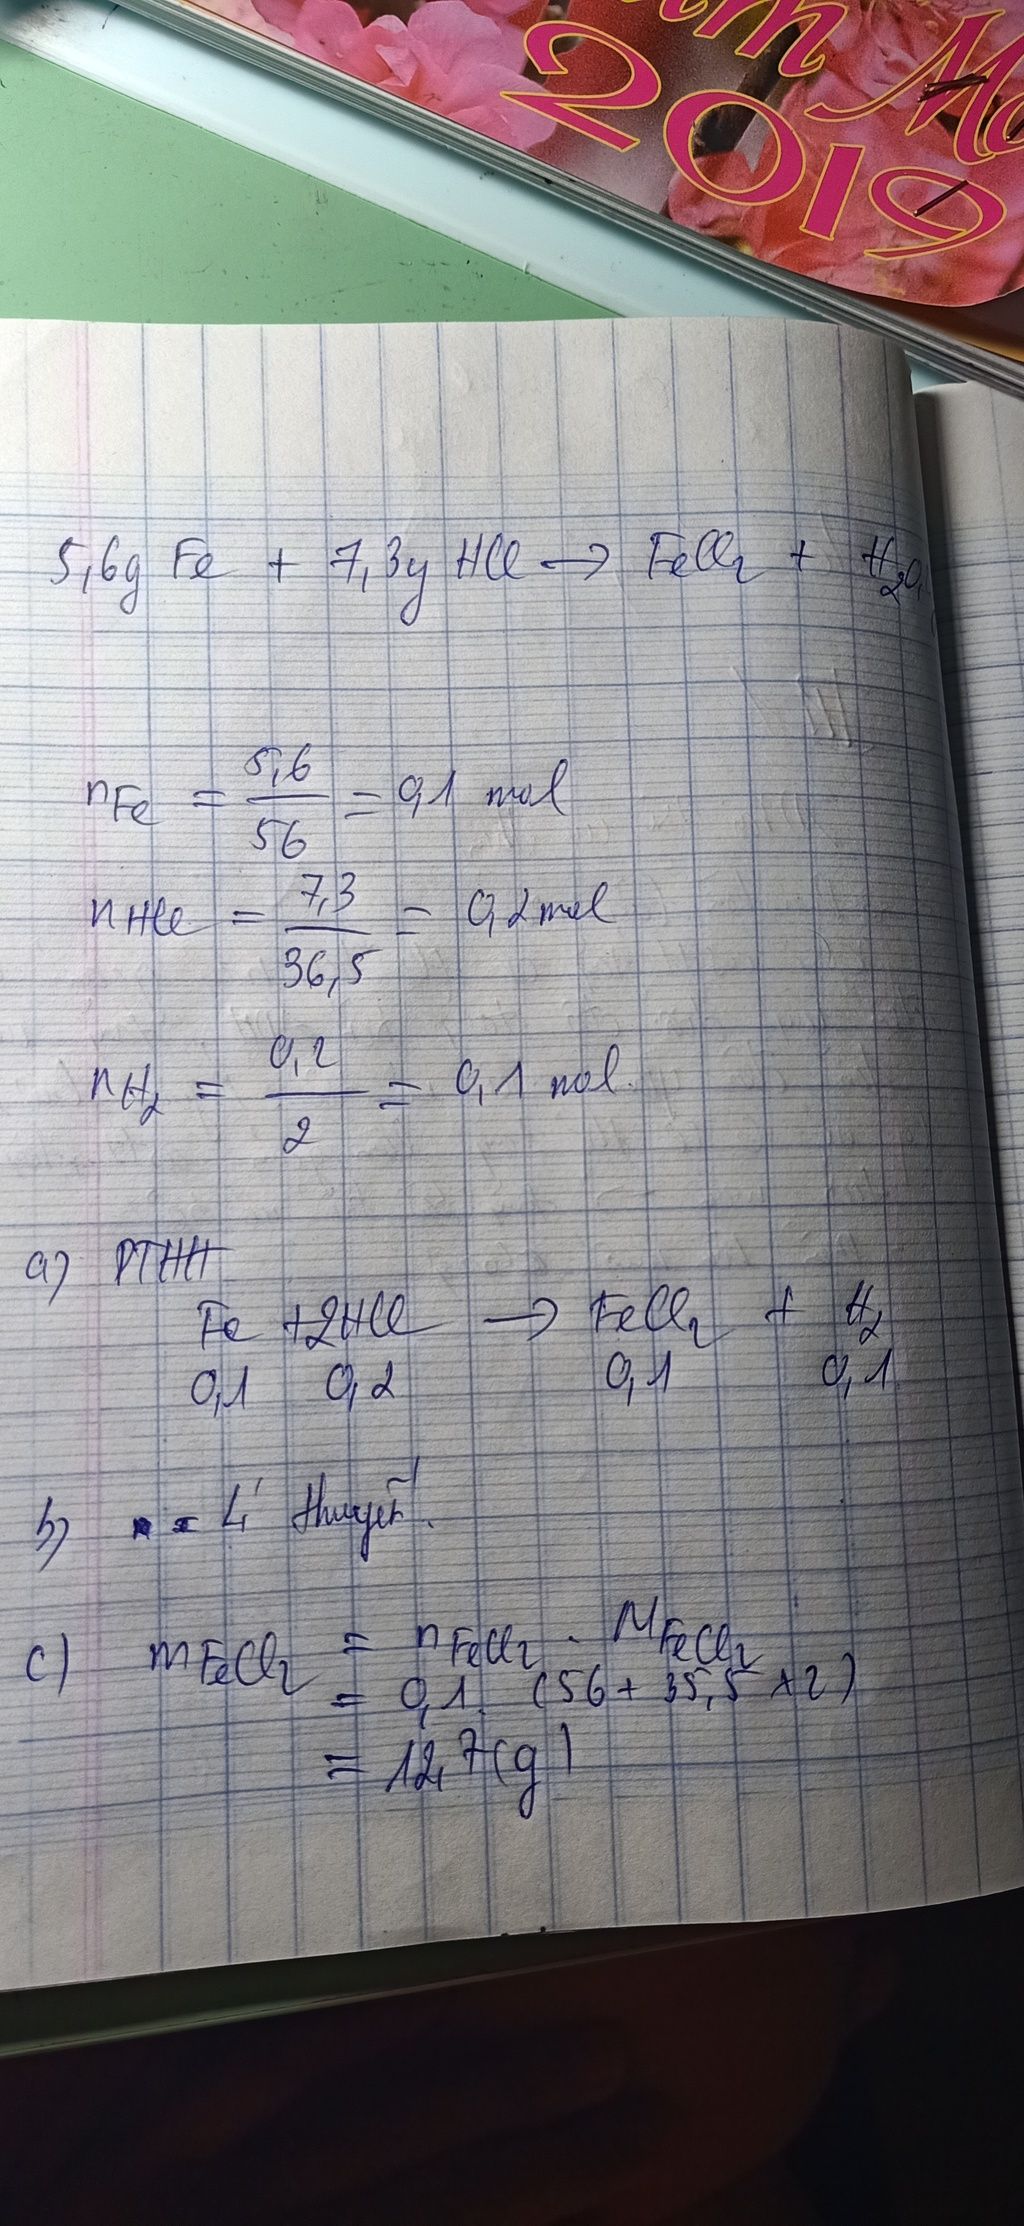 2019
5,6g Fe + 7,3g HCl → FeCl₂ + H₂
nFe = 5,6/56 = 0,1 mol
nHCl = 7,3/36,5 = 0,2 mol
nH₂ = 0,2/2 = 0,1 mol.
a) PTHH
Fe + 2HCl → FeCl₂ + H₂
0,1 0,2 0,1 0,1
b) Lí thuyết.
c) mFeCl₂ = nFeCl₂ . MFeCl₂
= 0,1. (56 + 35,5 x 2)
= 12,7 (g)